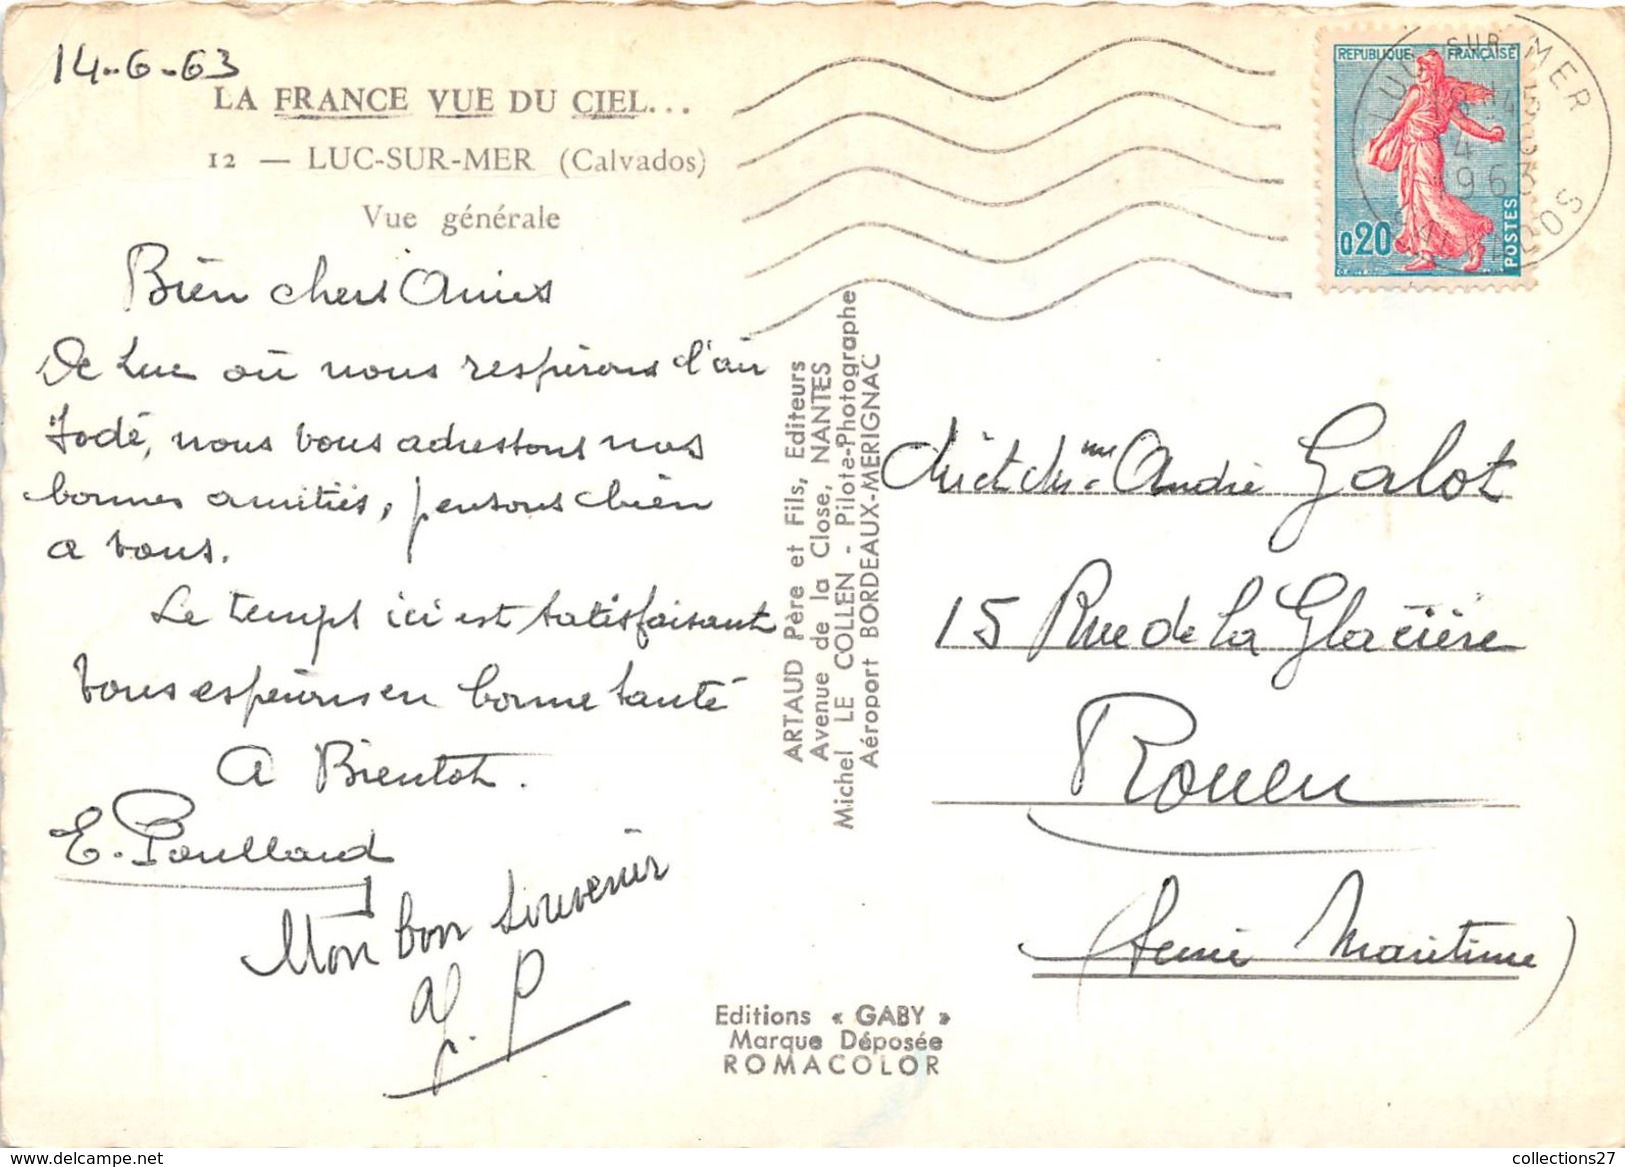 14-6-63
LA FRANCE VUE DU CIEL...
12 — LUC-SUR-MER (Calvados)
Vue générale
Bien chers Amis
De Luc où nous respirons l'air
Iodé, nous vous adressons nos
bonnes amitiés, pensons bien
a vous.
Le temps ici est satisfaisant
Vous espérons en bonne santé
A Bientot.
E. Poullard
Mon bon souvenir
P
ARTAUD Père et Fils, Editeurs
Avenue de la Close, NANTES
Michel LE COLLEN - Pilote-Photographe
Aéroport BORDEAUX-MERIGNAC
Editions « GABY »
Marque Déposée
ROMACOLOR
REPUBLIQUE FRANÇAISE
0,20
POSTES
LUC SUR MER
1963
CALVADOS
André Galot
15 Rue de la Glacière
Rouen
(Seine Maritime)
collections27
www.delcampe.net